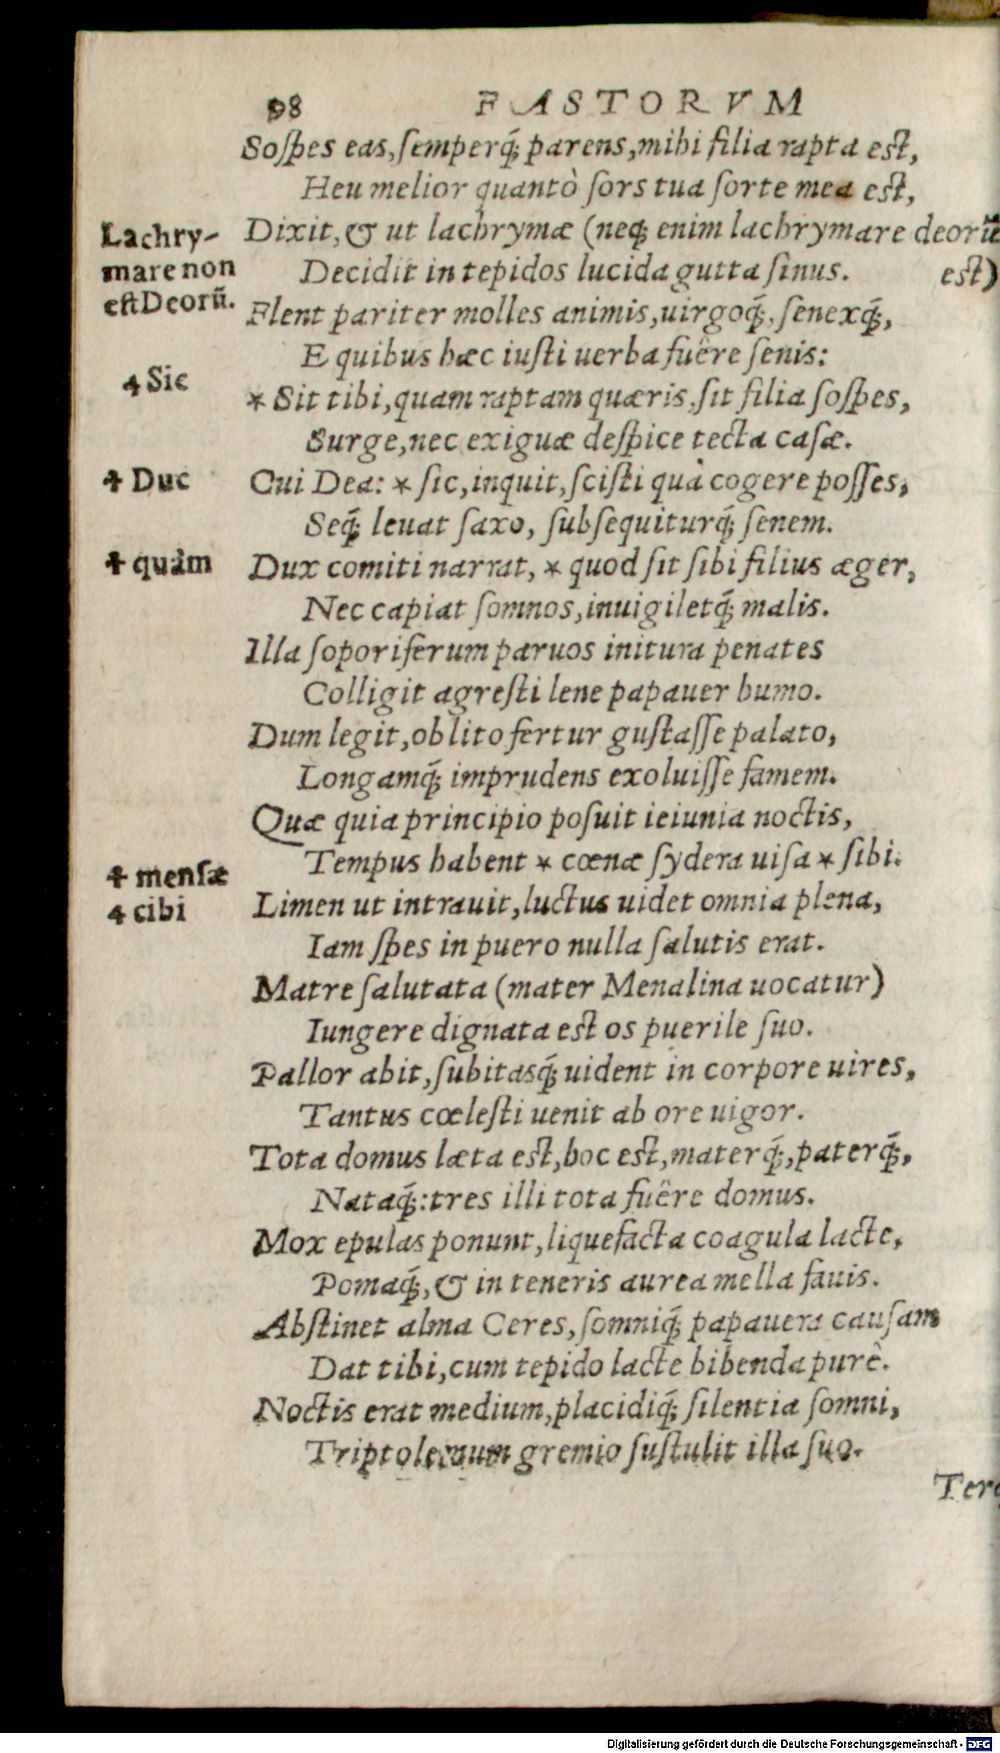 98 FASTORVM
Soſpes eas, ſemperq́; parens, mihi filia rapta eſt,
Heu melior quantò ſors tua ſorte mea eſt,
Dixit, & ut lachrymæ (neq; enim lachrymare deorũ
est)
Lachry-
mare non
eſt Deorũ.
Decidit in tepidos lucida gutta ſinus.
Flent pariter molles animis, uirgoq́;, ſenexq́;,
E quibus hæc iuſti uerba fuêre ſenis:
4 Sic
* Sit tibi, quam raptam quæris, ſit filia ſoſpes,
Surge, nec exiguæ deſpice tecta caſæ.
4 Duc
Cui Dea: * ſic, inquit, ſciſti quà cogere poſſes,
Seq́; leuat ſaxo, ſubſequiturq́; ſenem.
4 quàm
Dux comiti narrat, * quod ſit ſibi filius æger,
Nec capiat ſomnos, inuigiletq́; malis.
Illa ſoporiferum paruos initura penates
Colligit agreſti lene papauer humo.
Dum legit, oblito fertur guſtaſſe palato,
Longamq́; imprudens exoluiſſe famem.
Quæ quia principio poſuit ieiunia noctis,
Tempus habent * cœnæ ſydera uiſa * ſibi.
4 menſæ
4 cibi
Limen ut intrauit, luctus uidet omnia plena,
Iam ſpes in puero nulla ſalutis erat.
Matre ſalutata (mater Menalina uocatur)
Iungere dignata eſt os puerile ſuo.
Pallor abit, ſubitasq́; uident in corpore uires,
Tantus cœleſti uenit ab ore uigor.
Tota domus læta eſt, hoc eſt, materq́;, paterq́;,
Nataq́;: tres illi tota fuêre domus.
Mox epulas ponunt, liquefacta coagula lacte,
Pomaq́;, & in teneris aurea mella fauis.
Abſtinet alma Ceres, ſomniq́; papauera cauſam
Dat tibi, cum tepido lacte bibenda purè.
Noctis erat medium, placidiq́; ſilentia ſomni,
Triptolemum gremio ſuſtulit illa ſuo.
Digitalisierung gefördert durch die Deutsche Forschungsgemeinschaft - DFG